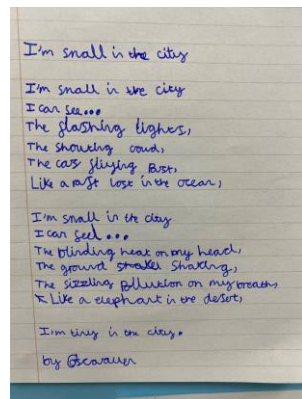 I'm small in the city
I'm small in the city
I can see...
The flashing lights,
The shouting
The cars flying Past,
Like a raft lost in the ocean,
I'm small in the city
I can feel...
The blinding heat on my head,
The ground shaking,
The sizzling Pollution on my breath,
Like a elephant in the desert,
I'm tiny in the city.
by